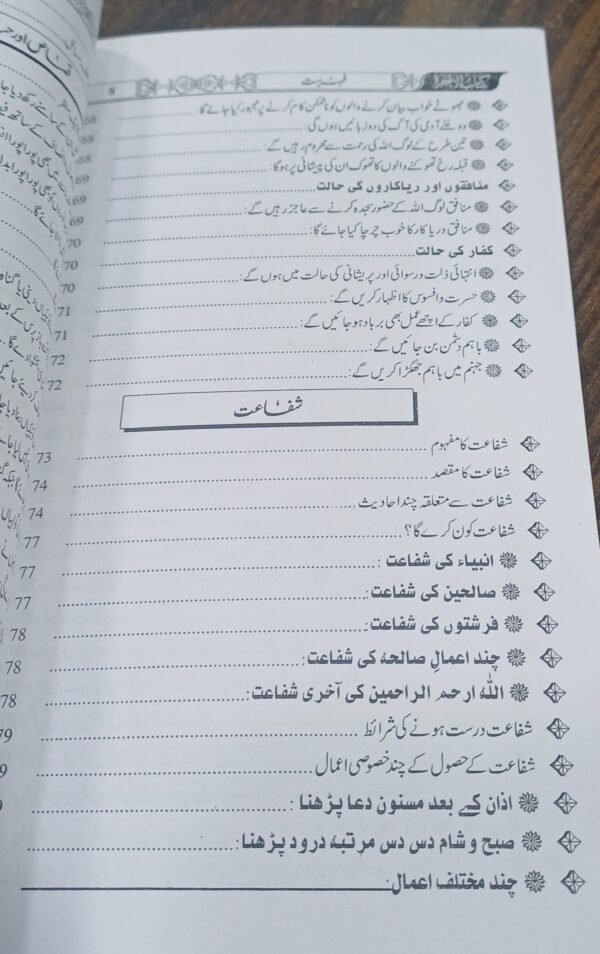 کتاب الآخرۃ فہرست 8
جھوٹے خواب بیان کرنے والوں کو ناممکن کام کرنے پر مجبور کیا جائے گا:
دوغلے آدمی کی آگ کی دو زبانیں ہوں گی: 68
تین طرح کے لوگ اللہ کی رحمت سے محروم رہیں گے: 68
قبلہ رخ تھوکنے والوں کا تھوک ان کی پیشانی پر ہوگا: 69
منافقوں اور ریاکاروں کی حالت 69
منافق لوگ اللہ کے حضور سجدہ کرنے سے عاجز رہیں گے: 69
منافق و ریاکار کا خوب چرچا کیا جائے گا: 70
کفار کی حالت 70
انتہائی ذلت و رسوائی اور پریشانی کی حالت میں ہوں گے: 70
حسرت و افسوس کا اظہار کریں گے: 71
کفار کے اچھے عمل بھی برباد ہو جائیں گے: 71
باہم دشمن بن جائیں گے: 72
جہنم میں باہم جھگڑا کریں گے: 72
شفاعت
شفاعت کا مفہوم 73
شفاعت کا مقصد 74
شفاعت سے متعلقہ چند احادیث 74
شفاعت کون کرے گا؟ 77
انبیاء کی شفاعت: 77
صالحین کی شفاعت: 77
فرشتوں کی شفاعت: 78
چند اعمالِ صالحہ کی شفاعت: 78
اللہ ارحم الراحمین کی آخری شفاعت: 78
شفاعت درست ہونے کی شرائط 79
شفاعت کے حصول کے چند خصوصی اعمال
اذان کے بعد مسنون دعا پڑھنا:
صبح و شام دس دس مرتبہ درود پڑھنا:
چند مختلف اعمال: